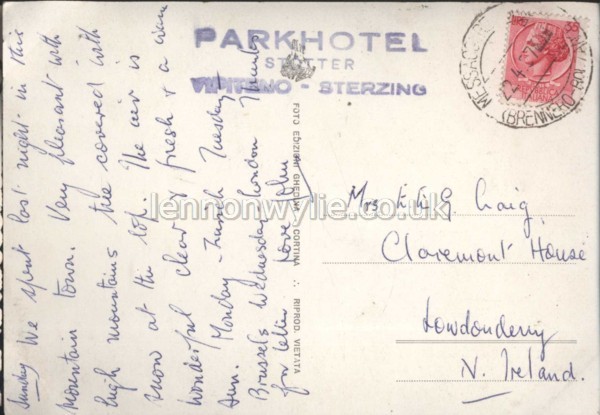 Sunday We spent last night in this
Mountain town. Very pleasant with
high mountains tree covered with
snow at the top. The air is
wonderful clear & fresh & a warm
sun. Monday - Zurich Tuesday -
Brussels Wednesday - London Thanks
for letter Love John
PARKHOTEL
STÖTTER
VIPITENO - STERZING
FOTO EDIZIONI GHEDINA - CORTINA ∴ RIPROD. VIETATA
(BRENNERO
Mrs
Craig
Claremont House
Londonderry
N. Ireland.
lennonwylie.co.uk